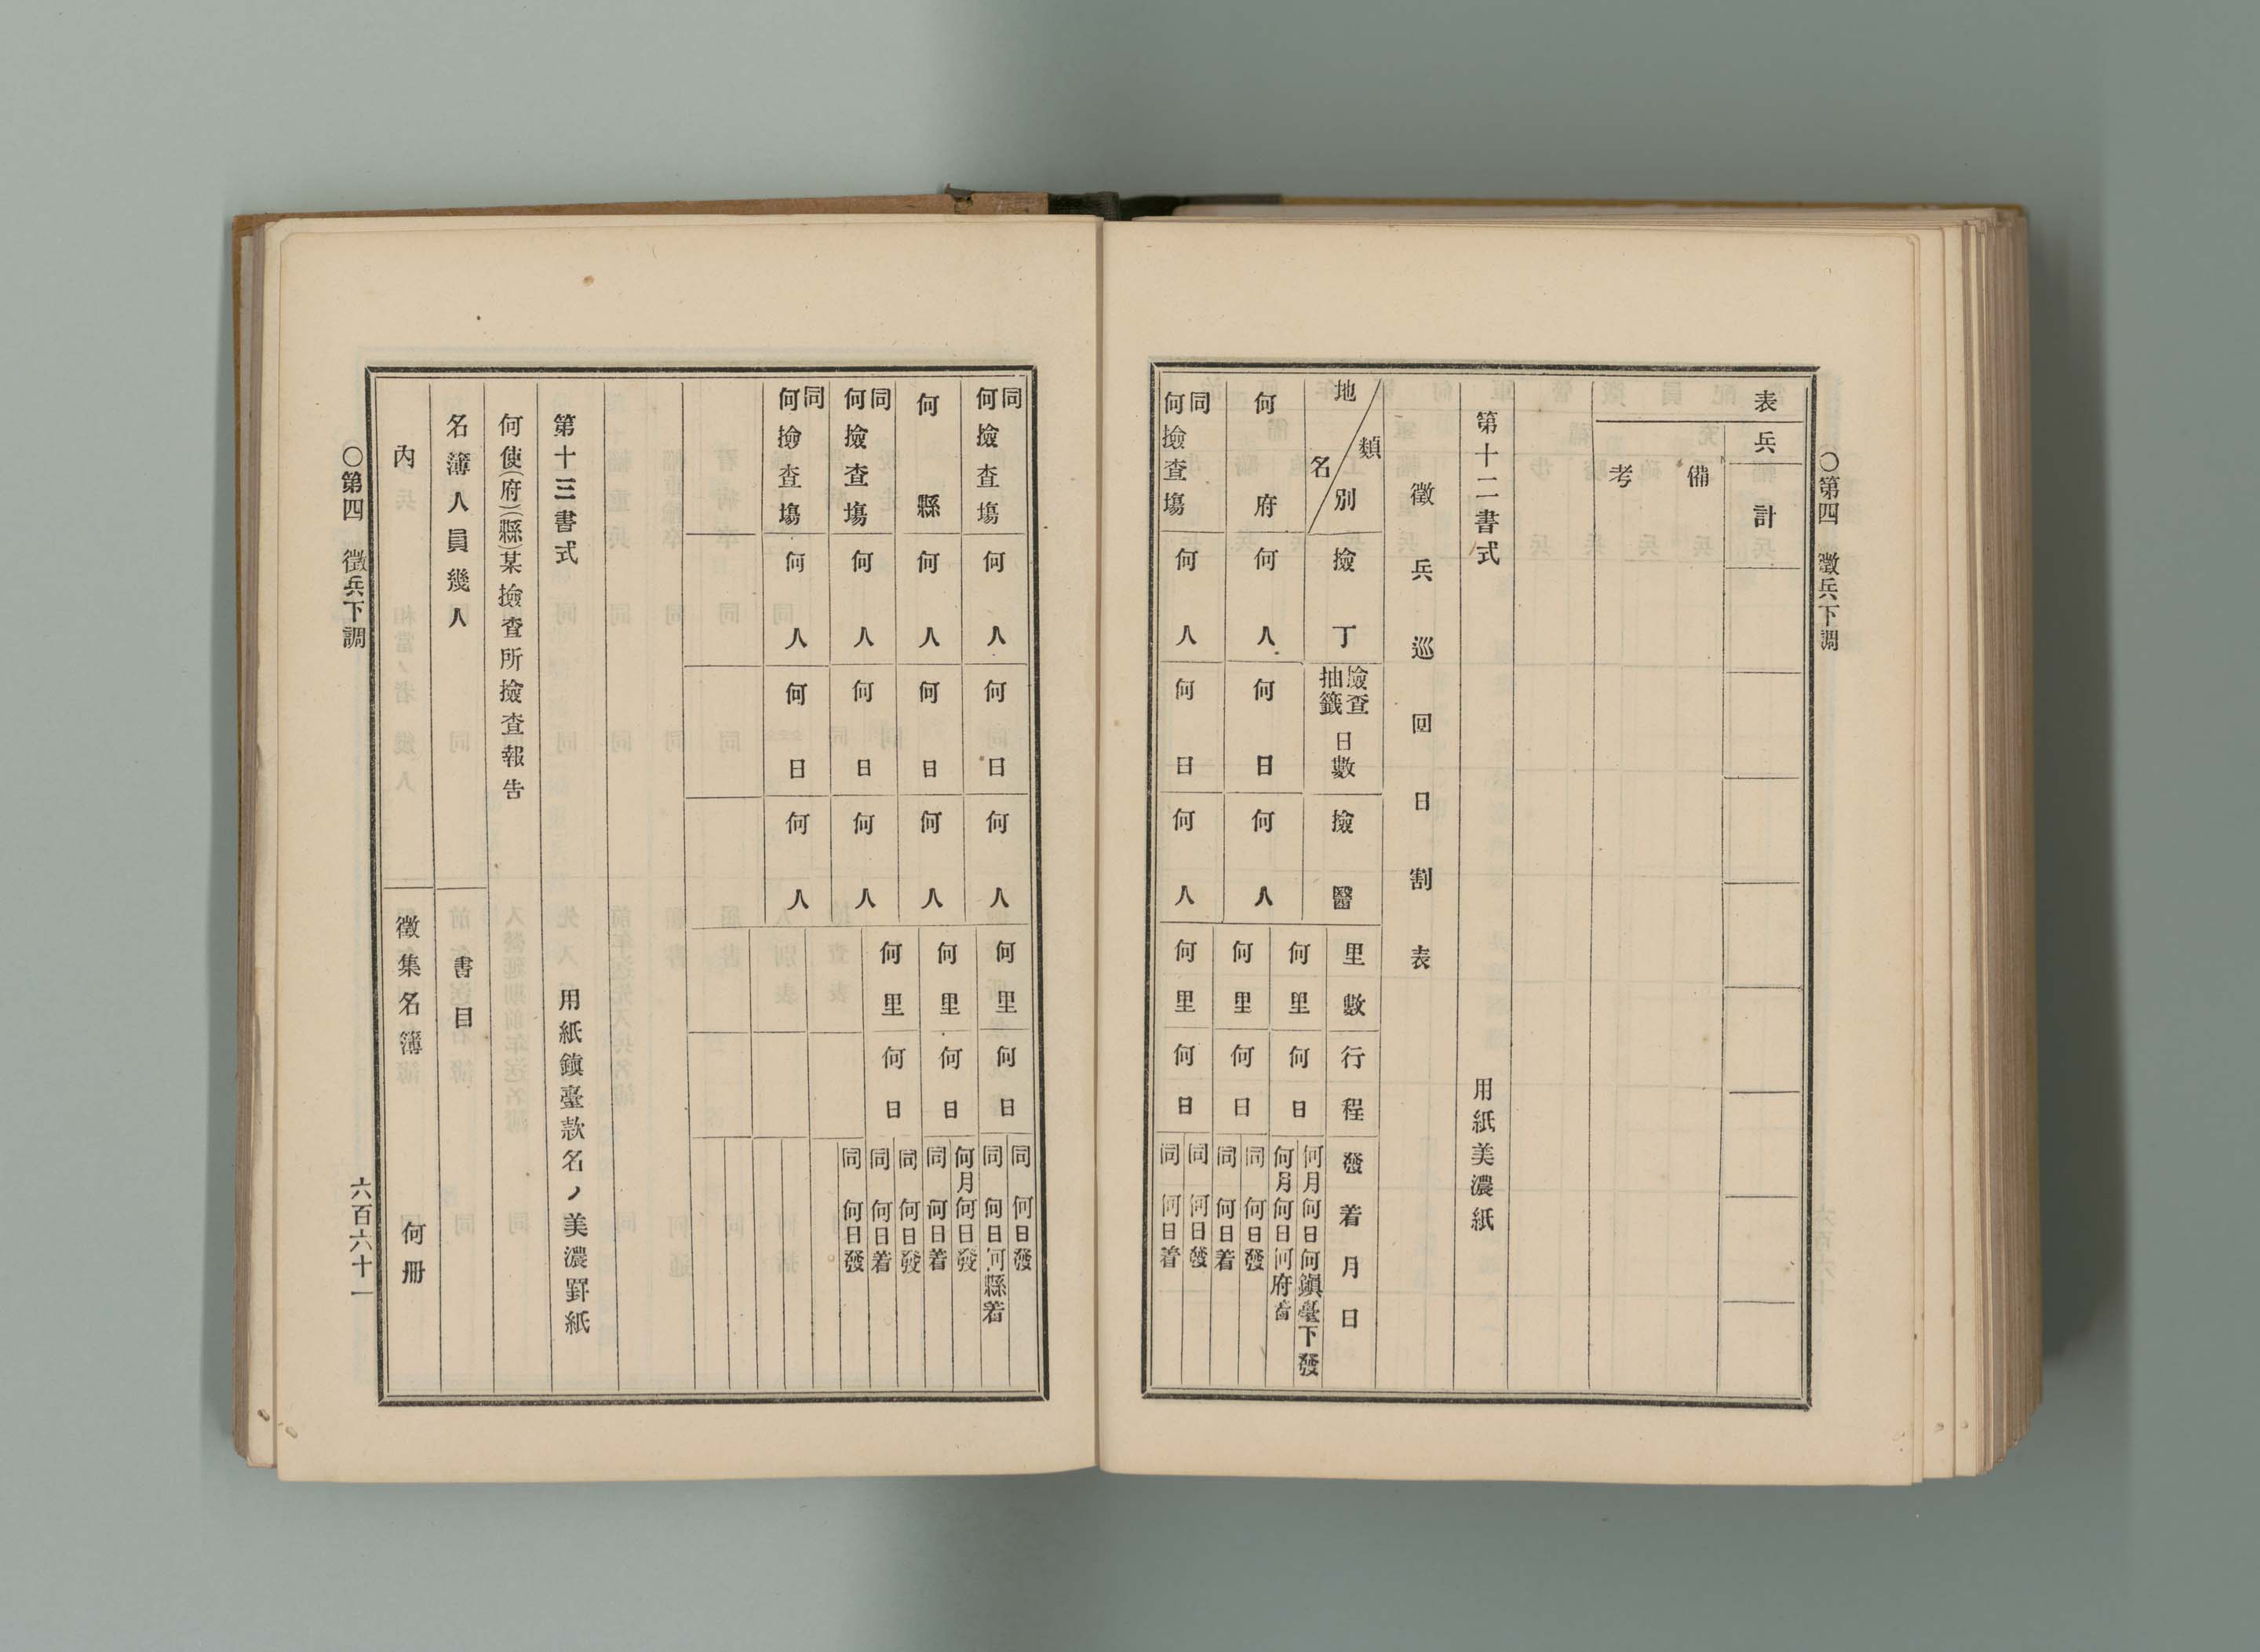 〇第四 徵兵下調
表
兵計
備考
第十二書式 用紙美濃紙
徵兵巡回日割表
地名
類別
撿丁
撿查抽籤日數
撿醫
里數
行程
發着月日
何府
何人
何日
何人
何里
何日
何月何日何鎭臺下發
何月何日何府着
同何撿查塲
何人
何日
何人
何里
何日
同 何日發
同 何日着
何里
何日
同 何日發
同 何日着
同何撿查塲
何人
何日
何人
何里
何日
同 何日發
同 何日何縣着
何縣
何人
何日
何人
何里
何日
何月何日發
同 何日着
同何撿查塲
何人
何日
何人
何里
何日
同 何日發
同 何日着
同何撿查塲
何人
何日
何人
同 何日發
第十三書式 用紙鎭臺款名ノ美濃罫紙
何使(府)(縣)某撿查所撿查報吿
名簿人員幾人 書目
內 徵集名簿 何册
〇第四 徵兵下調 六百六十一